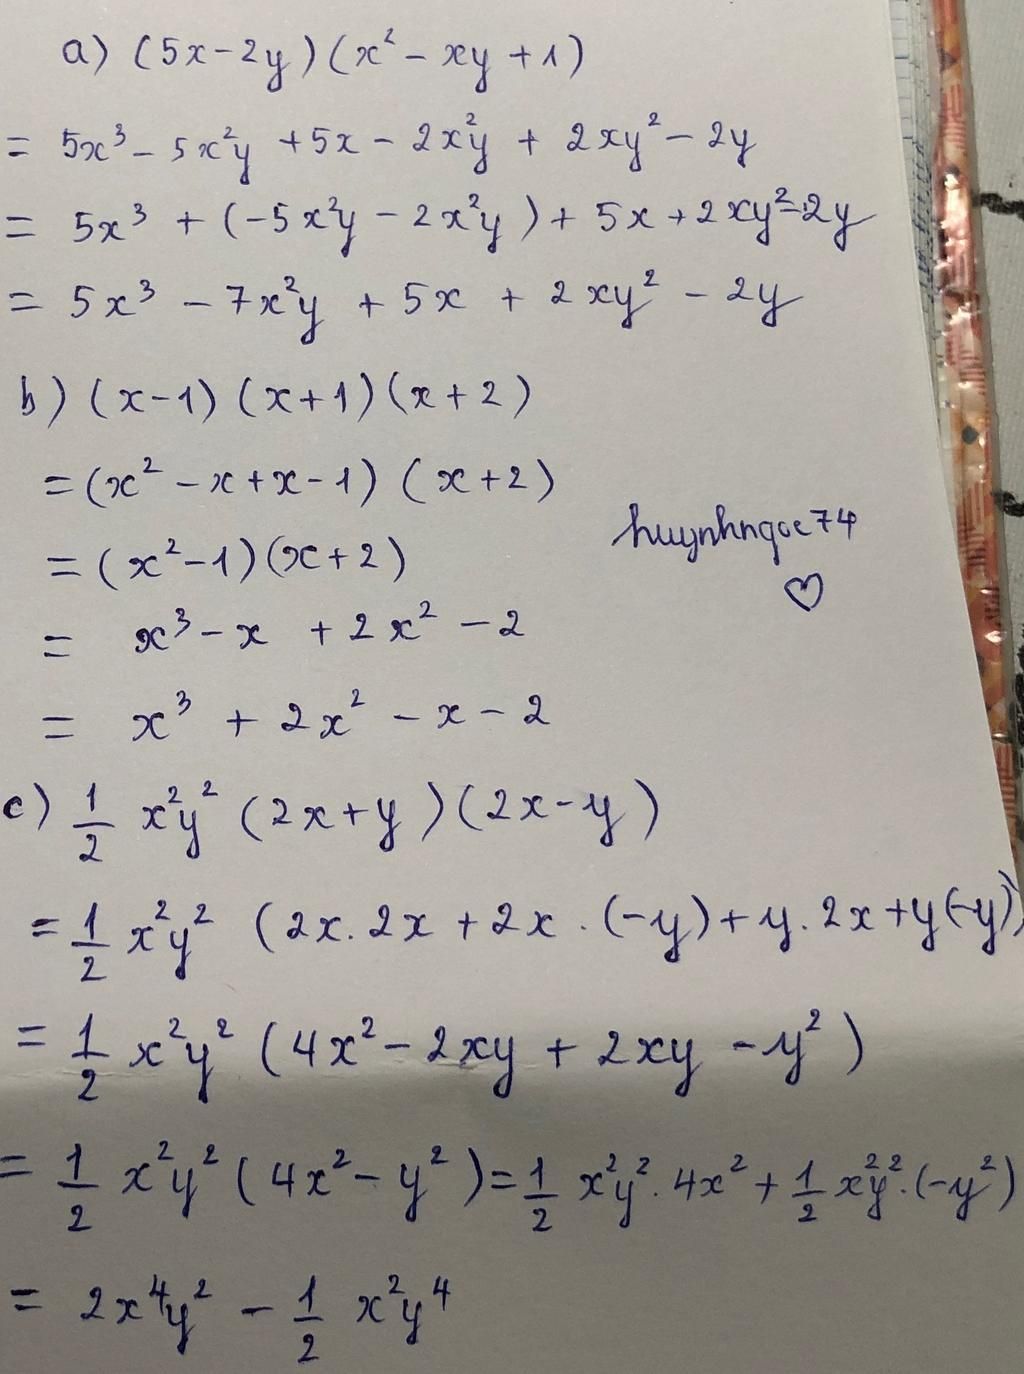 a) (5x-2y)(x² - xy + 1)
= 5x³ - 5x²y + 5x - 2x²y + 2xy² - 2y
= 5x³ + (-5x²y - 2x²y) + 5x + 2xy² - 2y
= 5x³ - 7x²y + 5x + 2xy² - 2y
b) (x-1)(x+1)(x+2)
= (x² - x + x - 1)(x+2)
= (x²-1)(x+2)
= x³ - x + 2x² - 2
= x³ + 2x² - x - 2
huynhngoc74
♡
c) 1/2 x²y² (2x+y)(2x-y)
= 1/2 x²y² (2x.2x + 2x.(-y) + y.2x + y(-y))
= 1/2 x²y² (4x² - 2xy + 2xy - y²)
= 1/2 x²y² (4x² - y²) = 1/2 x²y².4x² + 1/2 x²y².(-y²)
= 2x⁴y² - 1/2 x²y⁴